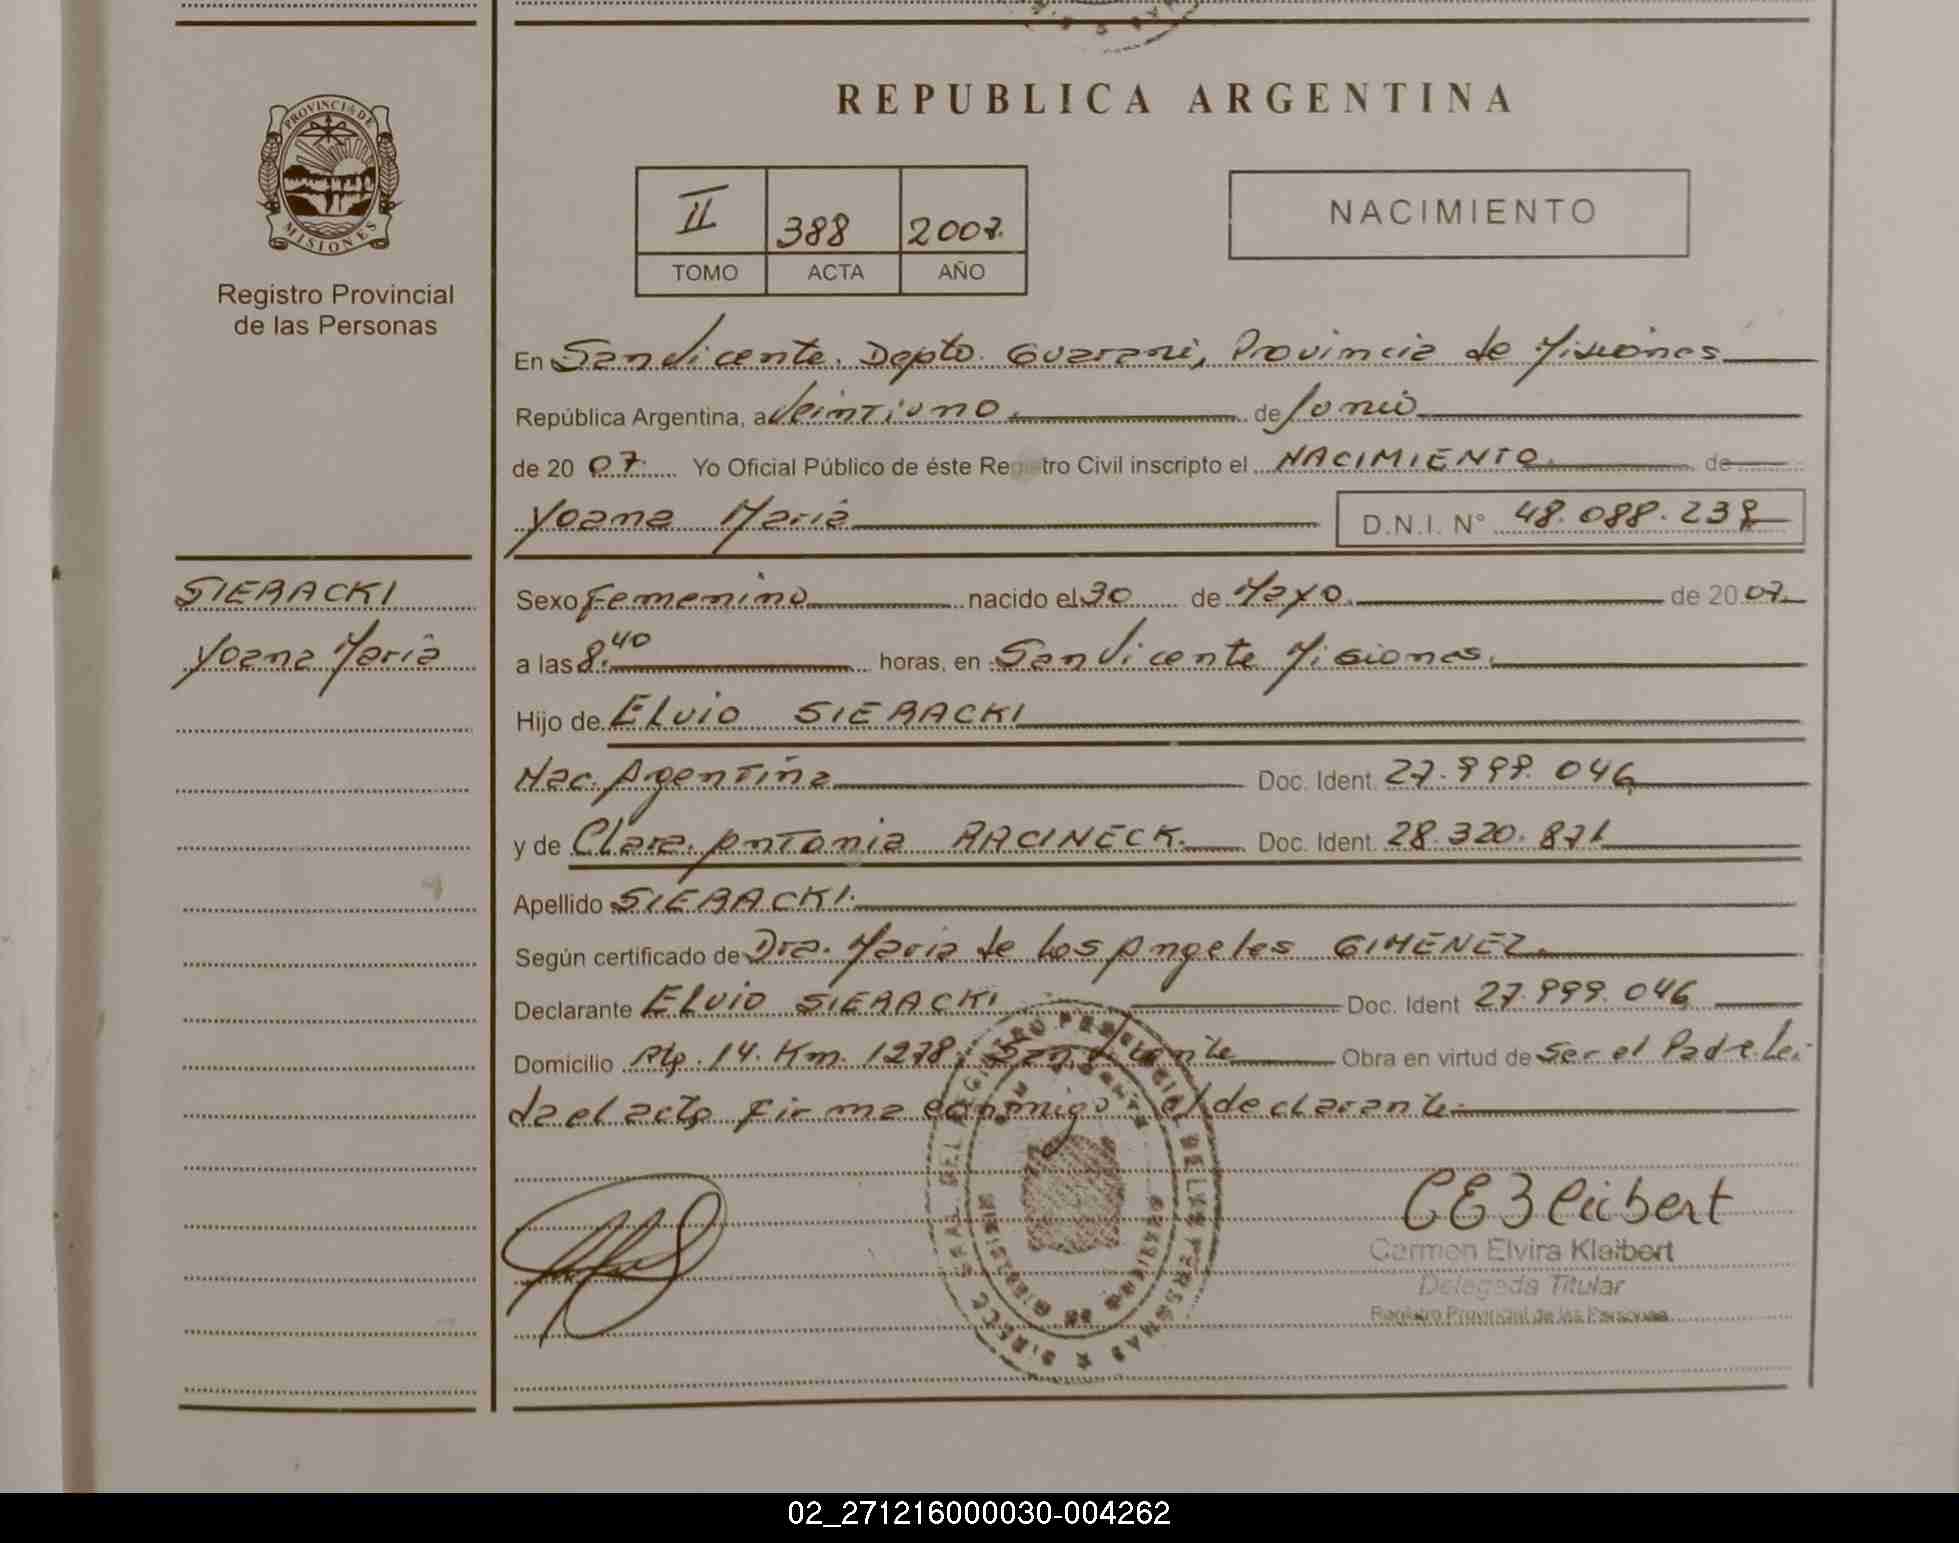 REPUBLICA ARGENTINA
PROVINCIA DE
MISIONES
Registro Provincial
de las Personas
II 388 2007.
TOMO ACTA AÑO
NACIMIENTO
En San Vicente. Depto. Guarani, Provincia de Misiones
República Argentina, a Veintiuno. de Junio
de 20 07. Yo Oficial Público de éste Registro Civil inscripto el NACIMIENTO. de
Yoana Maria D.N.I. N° 48.088.239
SIERACKI
Yoana Maria
Sexo Femenino nacido el 30 de Mayo. de 20 07.
a las 8.40 horas, en San Vicente Misiones.
Hijo de Elvio SIERACKI
Nac. Argentina Doc. Ident. 27.999.046
y de Clara Antonia RACINECK. Doc. Ident. 28.320.871
Apellido SIERACKI.
Según certificado de Dra. Maria de los Angeles GIMENEZ.
Declarante Elvio SIERACKI Doc. Ident 27.999.046
Domicilio Rta. 14. Km. 1278, San Vicente Obra en virtud de Ser el Padre. Lei-
da el acta firma conmigo el declarante.
CEKleibert
Carmen Elvira Klaibert
Delegada Titular
Registro Provincial de las Personas
02_271216000030-004262